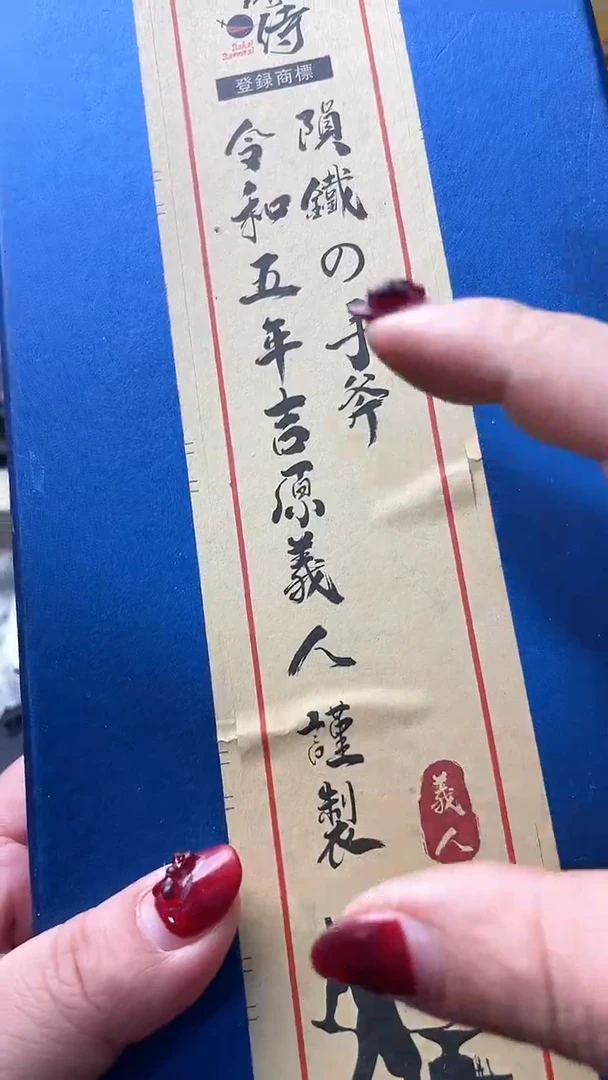 侍
Sakai
登録商標
隕鐵の手斧
令和五年吉原義人謹製
義人